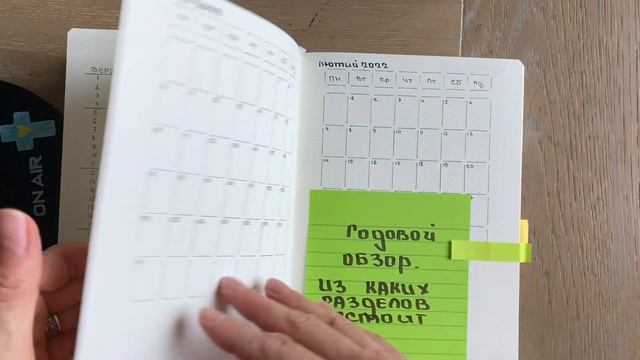 ON AIR
ЛЮТИЙ 2022
ПН ВТ СР ЧТ ПТ СБ НД
1 2 3 4 5 6
7 8 9 10 11 12 13
14 15 16 17 18 19 20
ГОДОВОЙ
ОБЗОР.
ИЗ КАКИХ
РАЗДЕЛОВ
СОСТОИТ